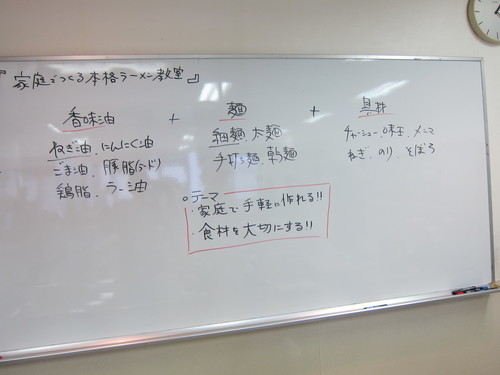 『家庭でつくる本格ラーメン教室』
香味油 + 麺 + 具材
ねぎ油、にんにく油
ごま油、豚脂(ラード)
鶏脂、ラー油
細麺、太麺
手打ち麺、乾麺
チャーシュー、味玉、メンマ
ねぎ、のり、そぼろ
○テーマ
・家庭で手軽に作れる!!
・食材を大切にする!!